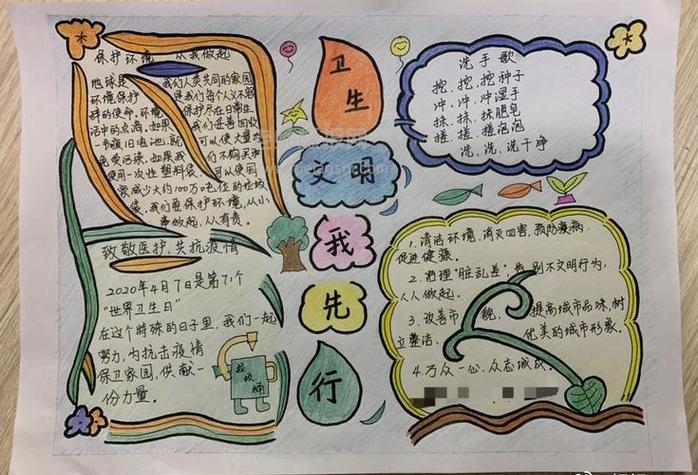 保护环境 从我做起
地球是 我们人类共同的家园
环境保护 是我们每个人义不容
辞的使命.环境 保护尽在日常生
活中的点滴,如果 我们妥善回收
一节废旧电池,就 可以使大量
免受污染,如果我 们不购买和
使用一次性塑料袋 可以使国
家减少大约100万吨位的垃圾
袋.我们要保护环境,从小
事做起,人人有责.
致敬医护,共抗疫情
2020年4月7日是第71个
“世界卫生日”
在这个特殊的日子里,我们一起
努力,为抗击疫情
保卫家园,供献一
份力量。
垃圾桶
卫生
文明
我
先
行
洗手歌
挖、挖、挖种子
冲、冲、冲湿手
抹、抹、抹肥皂
搓、搓、搓泡泡
洗、洗、洗干净
1.清洁环境,消灭四害,预防疾病,
促进健康。
2.治理“脏乱差” 告别不文明行为,
人人做起.
3.改善市 貌, 提高城市品味,树
立整洁、 优美的城市形象.
4.万众一心,众志成城.